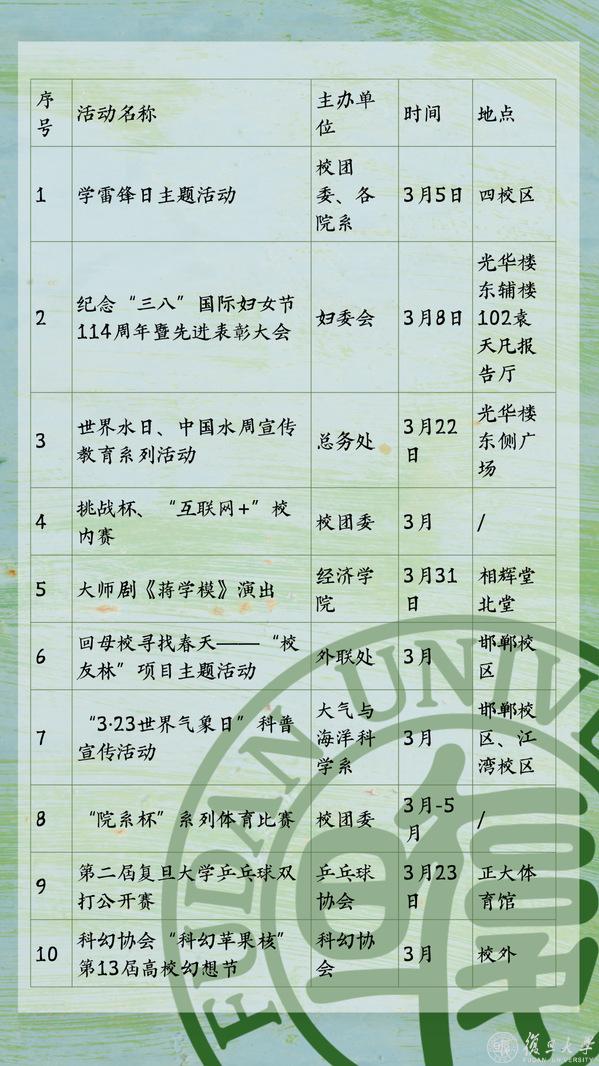 序号 活动名称 主办单位 时间 地点
1 学雷锋日主题活动 校团委、各院系 3月5日 四校区
2 纪念“三八”国际妇女节114周年暨先进表彰大会 妇委会 3月8日 光华楼东辅楼102袁天凡报告厅
3 世界水日、中国水周宣传教育系列活动 总务处 3月22日 光华楼东侧广场
4 挑战杯、“互联网+”校内赛 校团委 3月 /
5 大师剧《蒋学模》演出 经济学院 3月31日 相辉堂北堂
6 回母校寻找春天——“校友林”项目主题活动 外联处 3月 邯郸校区
7 “3·23世界气象日”科普宣传活动 大气与海洋科学系 3月 邯郸校区、江湾校区
8 “院系杯”系列体育比赛 校团委 3月-5月 /
9 第二届复旦大学乒乓球双打公开赛 乒乓球协会 3月23日 正大体育馆
10 科幻协会“科幻苹果核”第13届高校幻想节 科幻协会 3月 校外
FUDAN UNIVE
復旦大学
FUDAN UNIVERSITY